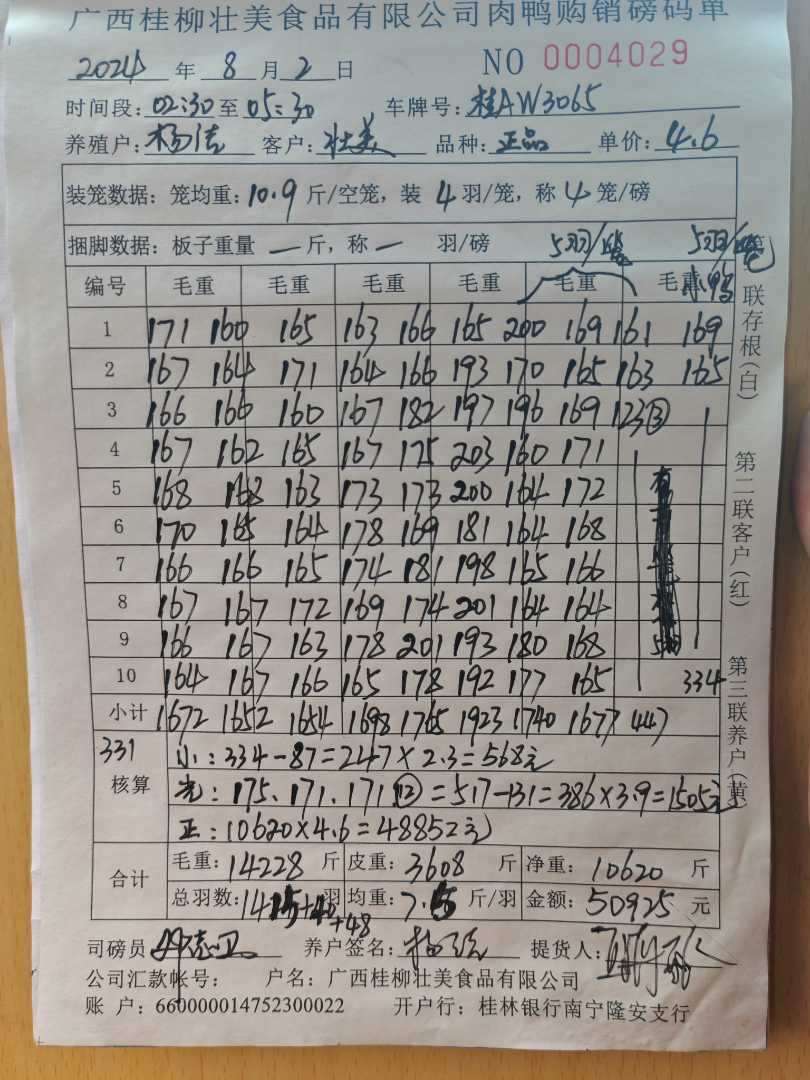 广西桂柳壮美食品有限公司肉鸭购销磅码单
2024 年 8 月 2 日 NO 0004029
时间段: 02:30 至 05:30 车牌号: 桂AW3065
养殖户: 杨洁 客户: 壮美 品种: 正品 单价: 4.6
装笼数据: 笼均重: 10.9 斤/空笼, 装 4 羽/笼, 称 4 笼/磅
捆脚数据: 板子重量 — 斤, 称 — 羽/磅 5羽/笼 5羽/笼
编号 毛重 毛重 毛重 毛重 毛重 毛重 小鸭
1 171 160 165 163 166 165 200 169 161 169
2 167 164 171 164 166 193 170 165 163 165
3 166 166 160 167 182 197 196 169 123③
4 167 162 165 167 175 203 160 171
5 168 168 163 173 173 200 164 172
6 170 165 164 178 169 181 164 168
7 166 166 165 174 181 198 165 166
8 167 167 172 169 174 201 164 164
9 166 167 163 178 201 193 180 168
10 164 167 166 165 178 192 177 165 334
小计 1672 1652 1654 1698 1765 1923 1740 1677 447
331
核算
小: 334-87=247×2.3=568元
光: 175.171.171⑫=517-131=386×3.9=1505元
正: 10620×4.6=48852元
合计
毛重: 14228 斤 皮重: 3608 斤 净重: 10620 斤
总羽数: 1415+40+48 羽 均重: 7.5 斤/羽 金额: 50925 元
司磅员 养户签名: 提货人:
公司汇款帐号: 户名: 广西桂柳壮美食品有限公司
账 户: 660000014752300022 开户行: 桂林银行南宁隆安支行
第一联存根(白)
第二联客户(红)
第三联养户(黄)